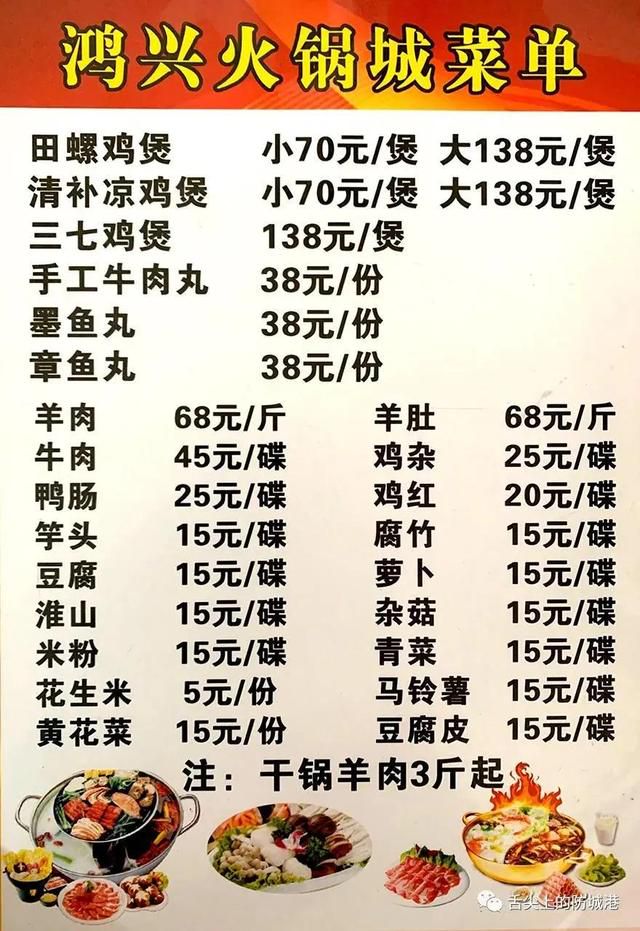 鸿兴火锅城菜单
田螺鸡煲 小70元/煲 大138元/煲
清补凉鸡煲 小70元/煲 大138元/煲
三七鸡煲 138元/煲
手工牛肉丸 38元/份
墨鱼丸 38元/份
章鱼丸 38元/份
羊肉 68元/斤 羊肚 68元/斤
牛肉 45元/碟 鸡杂 25元/碟
鸭肠 25元/碟 鸡红 20元/碟
竽头 15元/碟 腐竹 15元/碟
豆腐 15元/碟 萝卜 15元/碟
淮山 15元/碟 杂菇 15元/碟
米粉 15元/碟 青菜 15元/碟
花生米 5元/份 马铃薯 15元/碟
黄花菜 15元/份 豆腐皮 15元/碟
注：干锅羊肉3斤起
舌尖上的防城港